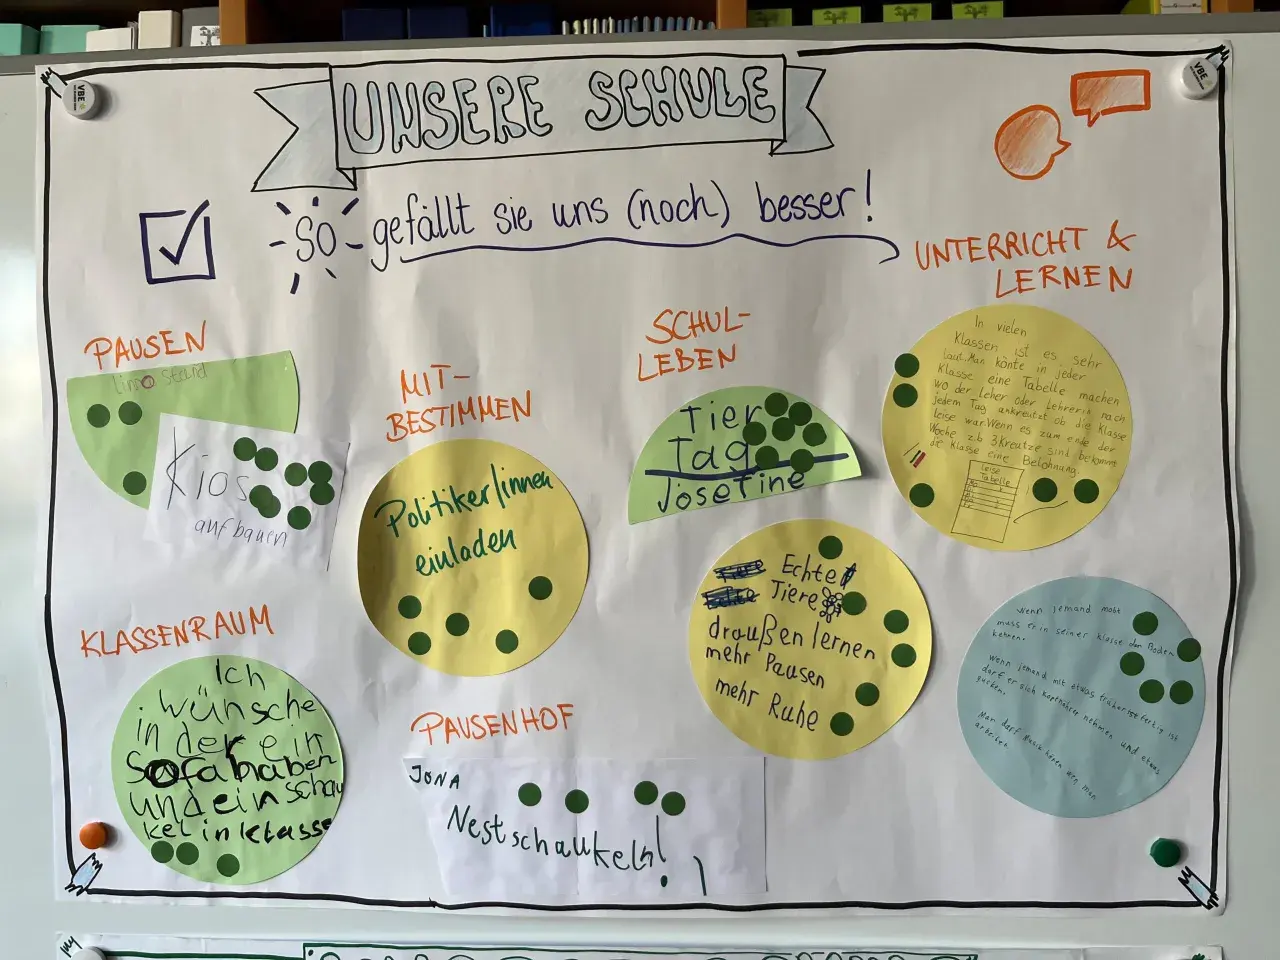 UNSERE SCHULE
VBE
VBE
SO gefällt sie uns (noch) besser!
PAUSEN
limo Stand
Kios
aufbauen
MIT-
BESTIMMEN
Politiker/innen
einladen
SCHUL-
LEBEN
Tier
Tag
Josefine
Echte
Tiere
draußen lernen
mehr Pausen
mehr Ruhe
UNTERRICHT &
LERNEN
In vielen
Klassen ist es sehr
laut. Man könte in jeder
Klasse eine Tabelle machen
wo der Leher oder Lehrerin nach
jedem Tag ankreutzt ob die Klasse
leise war. Wenn es zum ende der
Woche z.b 3 Kreutze sind bekommt
die Klasse eine Belohnung.
Leise
Tabelle
wenn jemand mobt
muss er in seiner klasse den Boden
kehren.
wenn jemand mit etwas früher ist fertig ist
darf er sich kopfhörer nehmen und etwas
gucken.
Man darf Musik hören wen man
arbeitet
KLASSENRAUM
Ich
wünsche
in der ein
Sofa haben
und ein schau
kel in klasse
PAUSENHOF
JONA
Nestschaukeln!
my